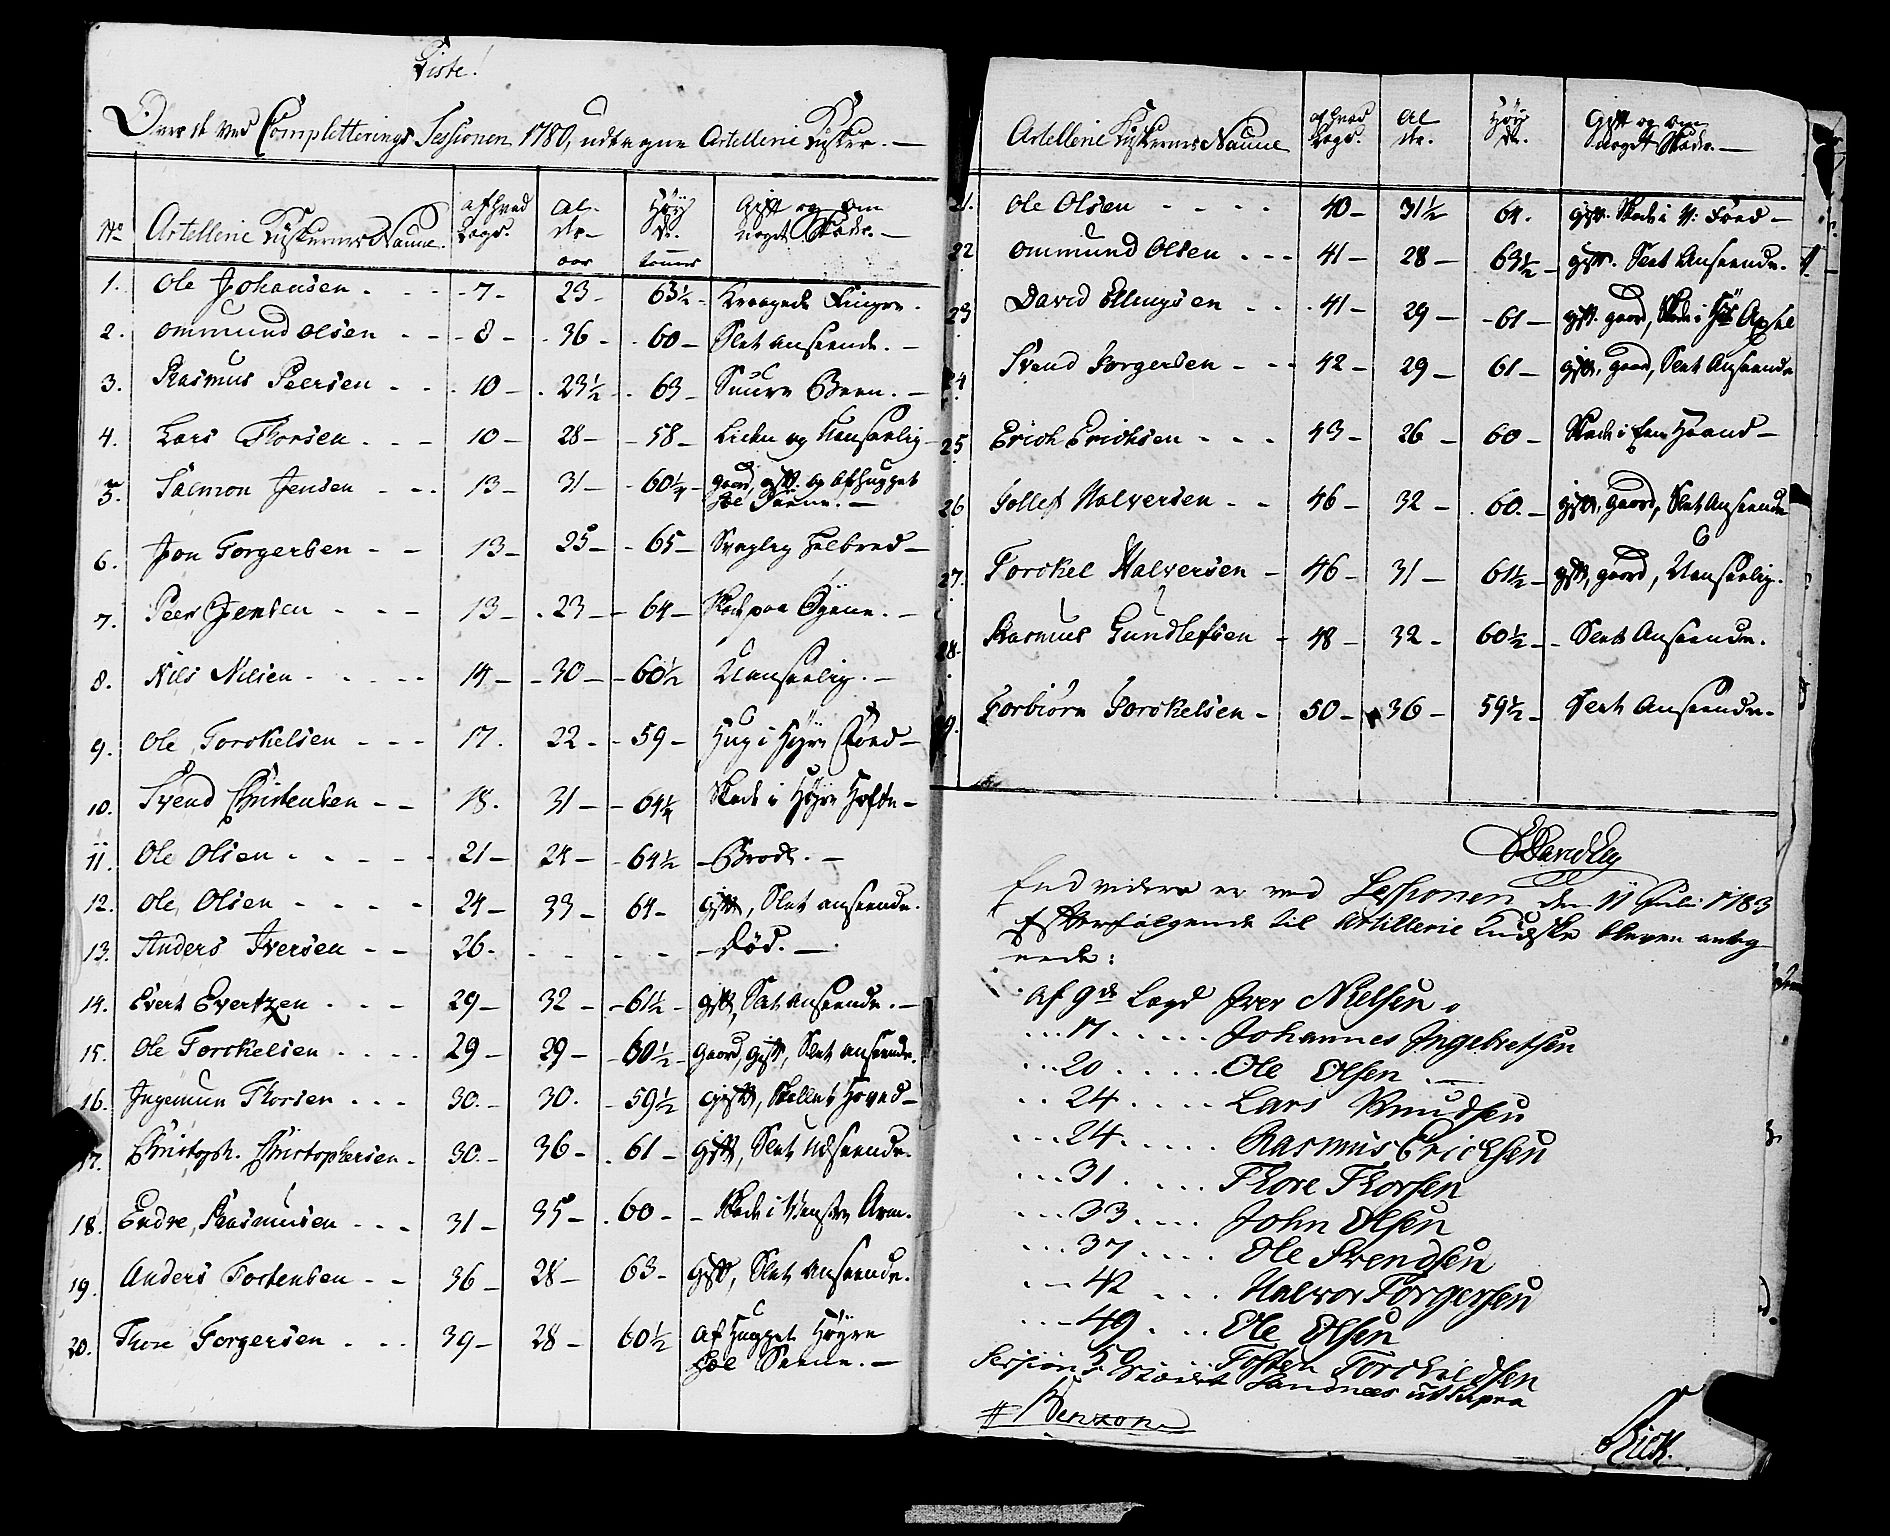 Liste!
Over de ved Completterings Sessionen 1780, udtagne Artellerie Kudsker. —
No Artellerie Kudskernes Naune. af hvad Lægd. Al- der- aar Høy de. tomer Gift og om noget Skade. —
1. Ole Johansen - - - 7 - 23 - 63½ - kroogede Fingre.
2. Ommund Olsen - - - 8 - 36 - 60 - Slet anseende. —
3. Rasmus Peersen - - - 10 - 23½ - 63 - Suure Been. —
4. Lars Thorsen - - - 10 - 28 - 58 - Liden og Uanseelig
5. Salmon Jensen - - - 13 - 31 - 60¼ - gaard, gift og afhugget
Hæl Seene. —
6. Jon Torgersen - - 13 - 25 - 65 - Svaglig Helbred —
7. Peer Jensen - - - 13 - 23 - 64 - Skade paa Øyene. —
8. Nils Nilsen - - - - 14 - 30 - 60½ Uanseelig. —
9. Ole Torckelsen - - - 17. 22 - 59 - Hug i Høyre Foed —
10. Svend Christensen - - 18. 31 - 64¼ Skade i Høyre Hofte —
11. Ole Olsen - - - - - 21 - 24 - 64½ - Brock. —
12. Ole Olsen - - - - 24 - 33 - 64 - gift, Slet anseende.
13. Anders Iversen - - 26 - - - - - - Død. —
14. Evert Evertzen - - - 29 - 32 - 61½ - gift, Slet anseende. —
15. Ole Torckelsen - - - - 29 - 29 - 60½ - Gaard, gift, Slet anseende.
16. Ingemun Thorsen - - - 30. - 30. - 59½ gift, Skallet Hoved —
17. Christoph. Christophersen - 30. - 36 - 61 - gift, Slet Udseende.
18. Endre Rasmusen - - - 31 - 35 - 60 - - Skade i Venstre Arm.
19. Anders Tostensen - - 36 - 28 - 63 - gift, Slet anseende.
20. Thore Torgersen - - - 39 - 28 - 60½ af Hugget Høyre
Hæl Seene. —
Artellerie Kudskernes Naune af hvad Lægd. Al der. Høy de. Gift og om noget Skade. —
21. Ole Olsen - - - - 40 - 31½ 64. gift. Skade i V: Foed —
22 Ommund Olsen - - - 41 - 28 - 63½ - gift. Slet Anseende.
23 David Ellingsen - - - 41 - 29 - 61 - gift. gaard, Skade i Høy: Axsel
24 Svend Torgersen - - - 42 - 29 - 61 - gift, gaard, Slet Anseende
25 Erich Erichsen - - - 43 - 26 - 60 - Skade i Een Haand —
26 Tollef Halversen - - 46 - 32 - 60. - gift, gaard, Slet Anseende
27. Torckel Halversen - 46 - 31 - 61½ - gift, gaard, Uanseelig.
28. Rasmus Gundlefsen - 48 - 32 - 60½ - - Slet Anseende.
29. Torbiørn Torckelsen - 50 - 36 - 59½ - Slet Anseende.
End videre er ved Sessionen den 11 Juli 1783
Efterfølgende til Artillerie Kudske bleven anteg
nede:
Af 9de Lægd Iver Nielsen
... 17 ..... Johannes Ingebretsen
... 20 ..... Ole Olsen —
.. 24 .... Lars Knudsen
... 24 ..... Rasmus Erichsen
... 31 ..... Thore Thorsen
... 33 .... John Olsen
... 37 .... Ole Svendsen
... 42 ... Halvor Torgersen
... 49 ... Ole Olsen
50 ... Tosten Torckildsen
Session Stædet Sandnæs ut supra
Benzon